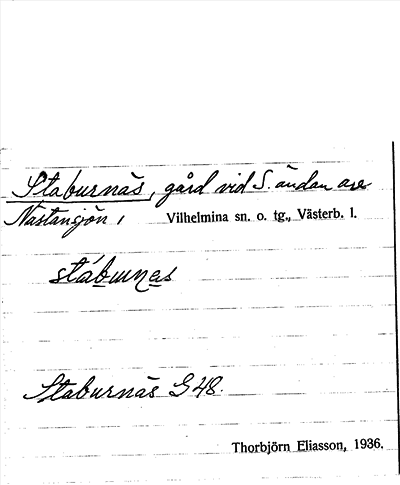 Staburnäs, gård vid S. ändan av
Nästansjön, Vilhelmina sn. o. tg., Västerb. l.
stáburnas
Staburnäs G 48.
Thorbjörn Eliasson, 1936.